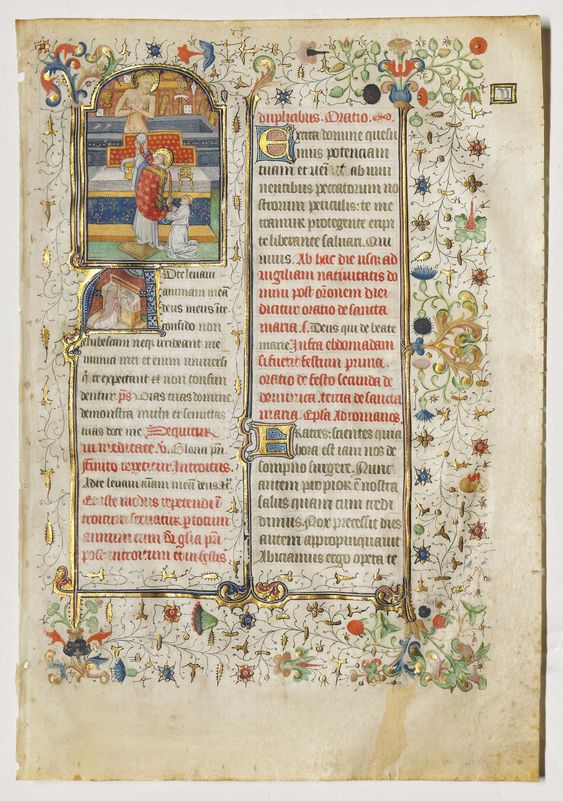 D te levavi
animam meā
deus meus ī te
confido non
erubescam neqȝ irrideant me
inimici mei et enim universi
q̄ te expectant et non confun
dentur. p̄s Vias tuas domine
demonstra michi et semitas
tuas doce me. Sequitur
v̄. Gloria pr̄i
finito repetitur Introitus.
Ad te levavi aīam meā deus
Et iste modus repetendi ī
troitum servatur p totum
annum cum Gl̄ia pr̄i
post introitum et in festis
duplicibus. Oratio.
Excita domine quesu
mus potenciam
tuam et veni ut ab immi
nentibus peccatorum no
strorum periculis: te me
reamur protegente eripi
te liberante salvari. Qui
vivis. Ab hac die usqȝ ad
vigiliam nativitatis do
mini post or̄onem diei
dicitur oratio de sancta
maria. s. Deus qui de beate
marie Infra ebdomadam
si fuerit festum prima
oratio de festo secunda de
dominica. tercia de sancta
maria. Ep̄la Ad romanos.
Fratres: scientes quia
hora est iam nos de
sompno surgere. Nunc
autem propior ē nostra
salus quam cum credi
dimus. Nox precessit dies
autem appropinquavit
Abiciamus ergo opera te